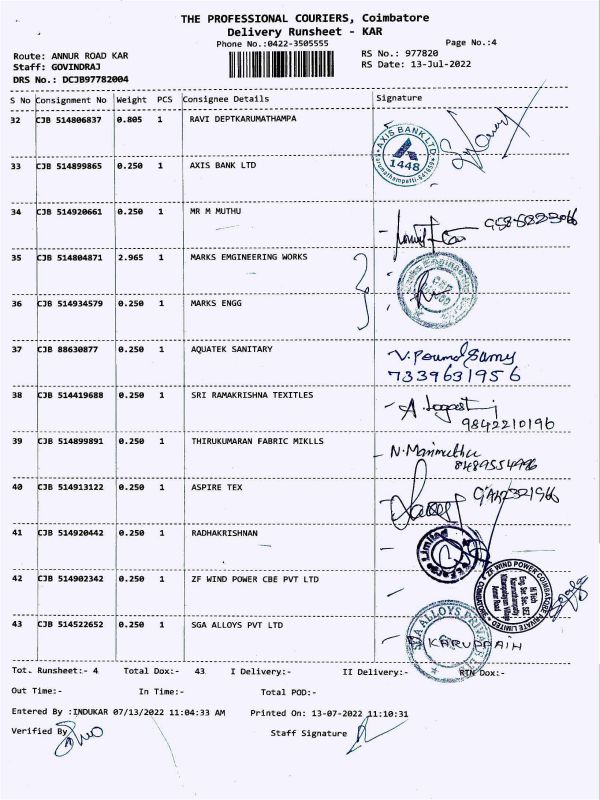 THE PROFESSIONAL COURIERS, Coimbatore
Delivery Runsheet - KAR
Phone No.:0422-3505555
Page No.:4
Route: ANNUR ROAD KAR
RS No.: 977820
Staff: GOVINDRAJ
RS Date: 13-Jul-2022
DRS No.: DCJB97782004
S No Consignment No Weight PCS Consignee Details Signature
32 CJB 514806837 0.805 1 RAVI DEPTKARUMATHAMPA
AXIS BANK LTD
1448
33 CJB 514899865 0.250 1 AXIS BANK LTD
34 CJB 514920661 0.250 1 MR M MUTHU
35 CJB 514804871 2.965 1 MARKS EMGINEERING WORKS
36 CJB 514934579 0.250 1 MARKS ENGG
37 CJB 88630877 0.250 1 AQUATEK SANITARY
7339631956
38 CJB 514419688 0.250 1 SRI RAMAKRISHNA TEXITLES
9842210196
39 CJB 514899891 0.250 1 THIRUKUMARAN FABRIC MIKLLS
N. Marimuthu
40 CJB 514913122 0.250 1 ASPIRE TEX
41 CJB 514920442 0.250 1 RADHAKRISHNAN
42 CJB 514902342 0.250 1 ZF WIND POWER CBE PVT LTD
ZF WIND POWER COIMBATORE PRIVATE LIMITED
43 CJB 514522652 0.250 1 SGA ALLOYS PVT LTD
SGA ALLOYS PRIVATE LTD
KARUPPAIH
Tot. Runsheet:- 4 Total Dox:- 43 I Delivery:- II Delivery:- RTN Dox:-
Out Time:- In Time:- Total POD:-
Entered By :INDUKAR 07/13/2022 11:04:33 AM Printed On: 13-07-2022 11:10:31
Verified By Staff Signature